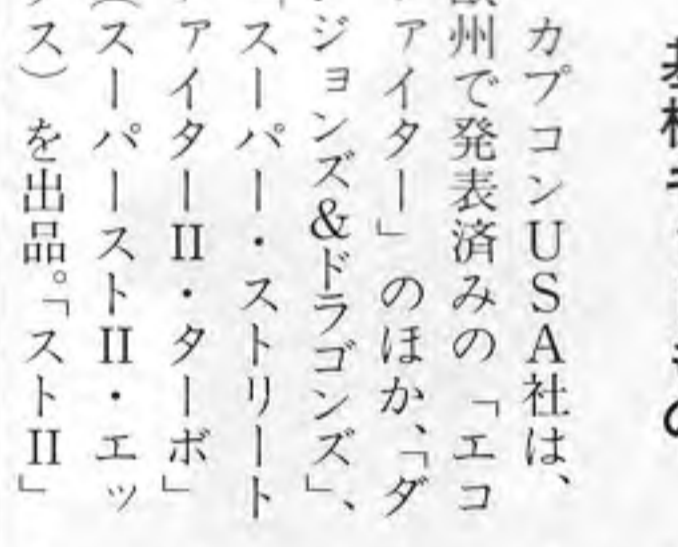 カプコンUSA社は、
欧州で発表済みの「エコ
ァイター」のほか、「ダ
ジョンズ&ドラゴンズ」、
「スーパー・ストリート
ァイターII・ターボ」
(スーパーストII・エッ
ス)を出品。「ストII」